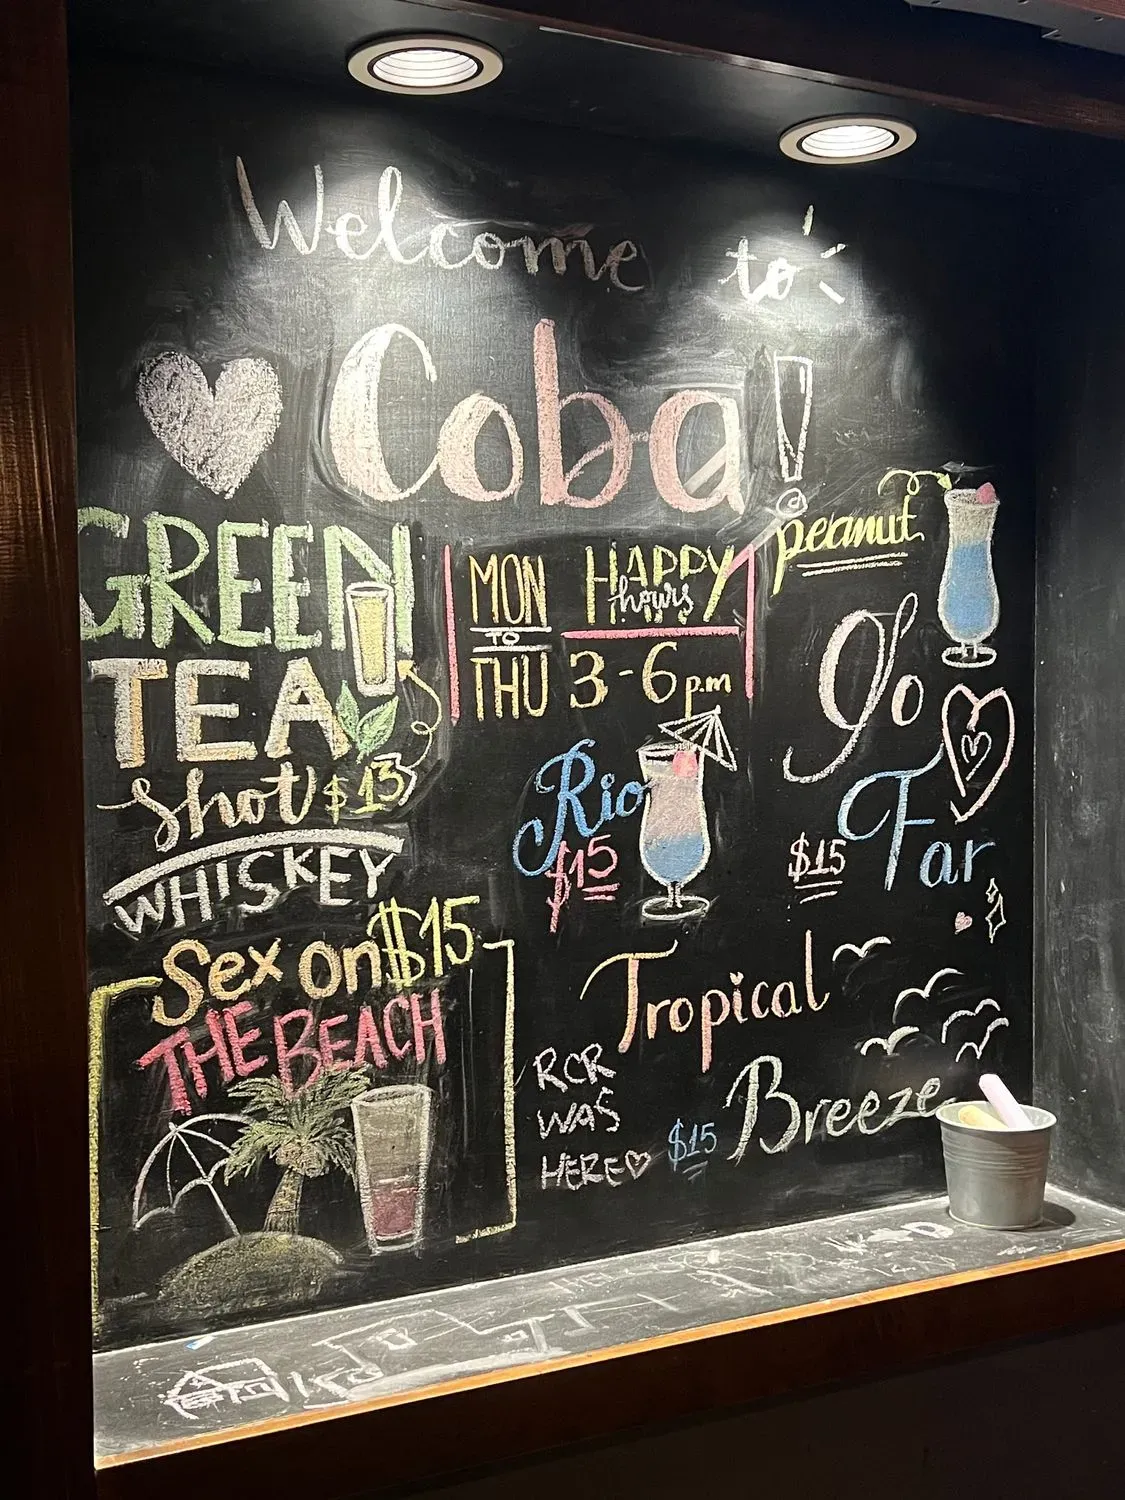 Welcome to
Coba!
GREEN
TEA
Shot $13
WHISKEY
MON
TO
THU
HAPPY
hours
3-6 p.m
peanut
Go
Far
$15
Rio
$15
Sex on $15
THE BEACH
Tropical
Breeze
$15
RCR
WAS
HERE♡